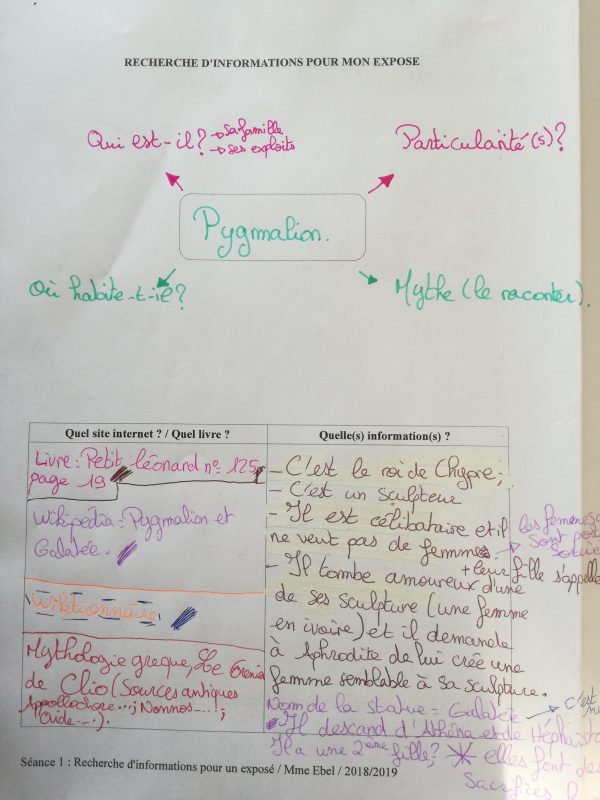 RECHERCHE D'INFORMATIONS POUR MON EXPOSE
Qui est-il? → sa famille
→ ses exploits
Particularité(s)?
Pygmalion.
Où habite-t-il?
Mythe (le raconter).
Quel site internet ? / Quel livre ?
Livre: Petit léonard n° 125,
page 19
Wikipédia: Pygmalion et
Galatée.
Wiktionnaire
Mythologie grecque, Le Grenier
de Clio (Sources antiques
Appollodore...; Nonnos...;
Ovide...).
Quelle(s) information(s) ?
- C'est le roi de Chypre;
- C'est un sculpteur
- Il est célibataire et il
ne veut pas de femmes
→ les femmes
sont
- Il tombe amoureux d'une
+ leur fille s'appelle
de ses sculpture (une femme
en ivoire) et il demande
à Aphrodite de lui créé une
femme semblable à sa sculpture.
Nom de la statue = Galatée
→ c'est
- Il descand d'Athéna et de
Il a une 2ème fille? * elles font des
sacrifices
Séance 1 : Recherche d'informations pour un exposé / Mme Ebel / 2018/2019